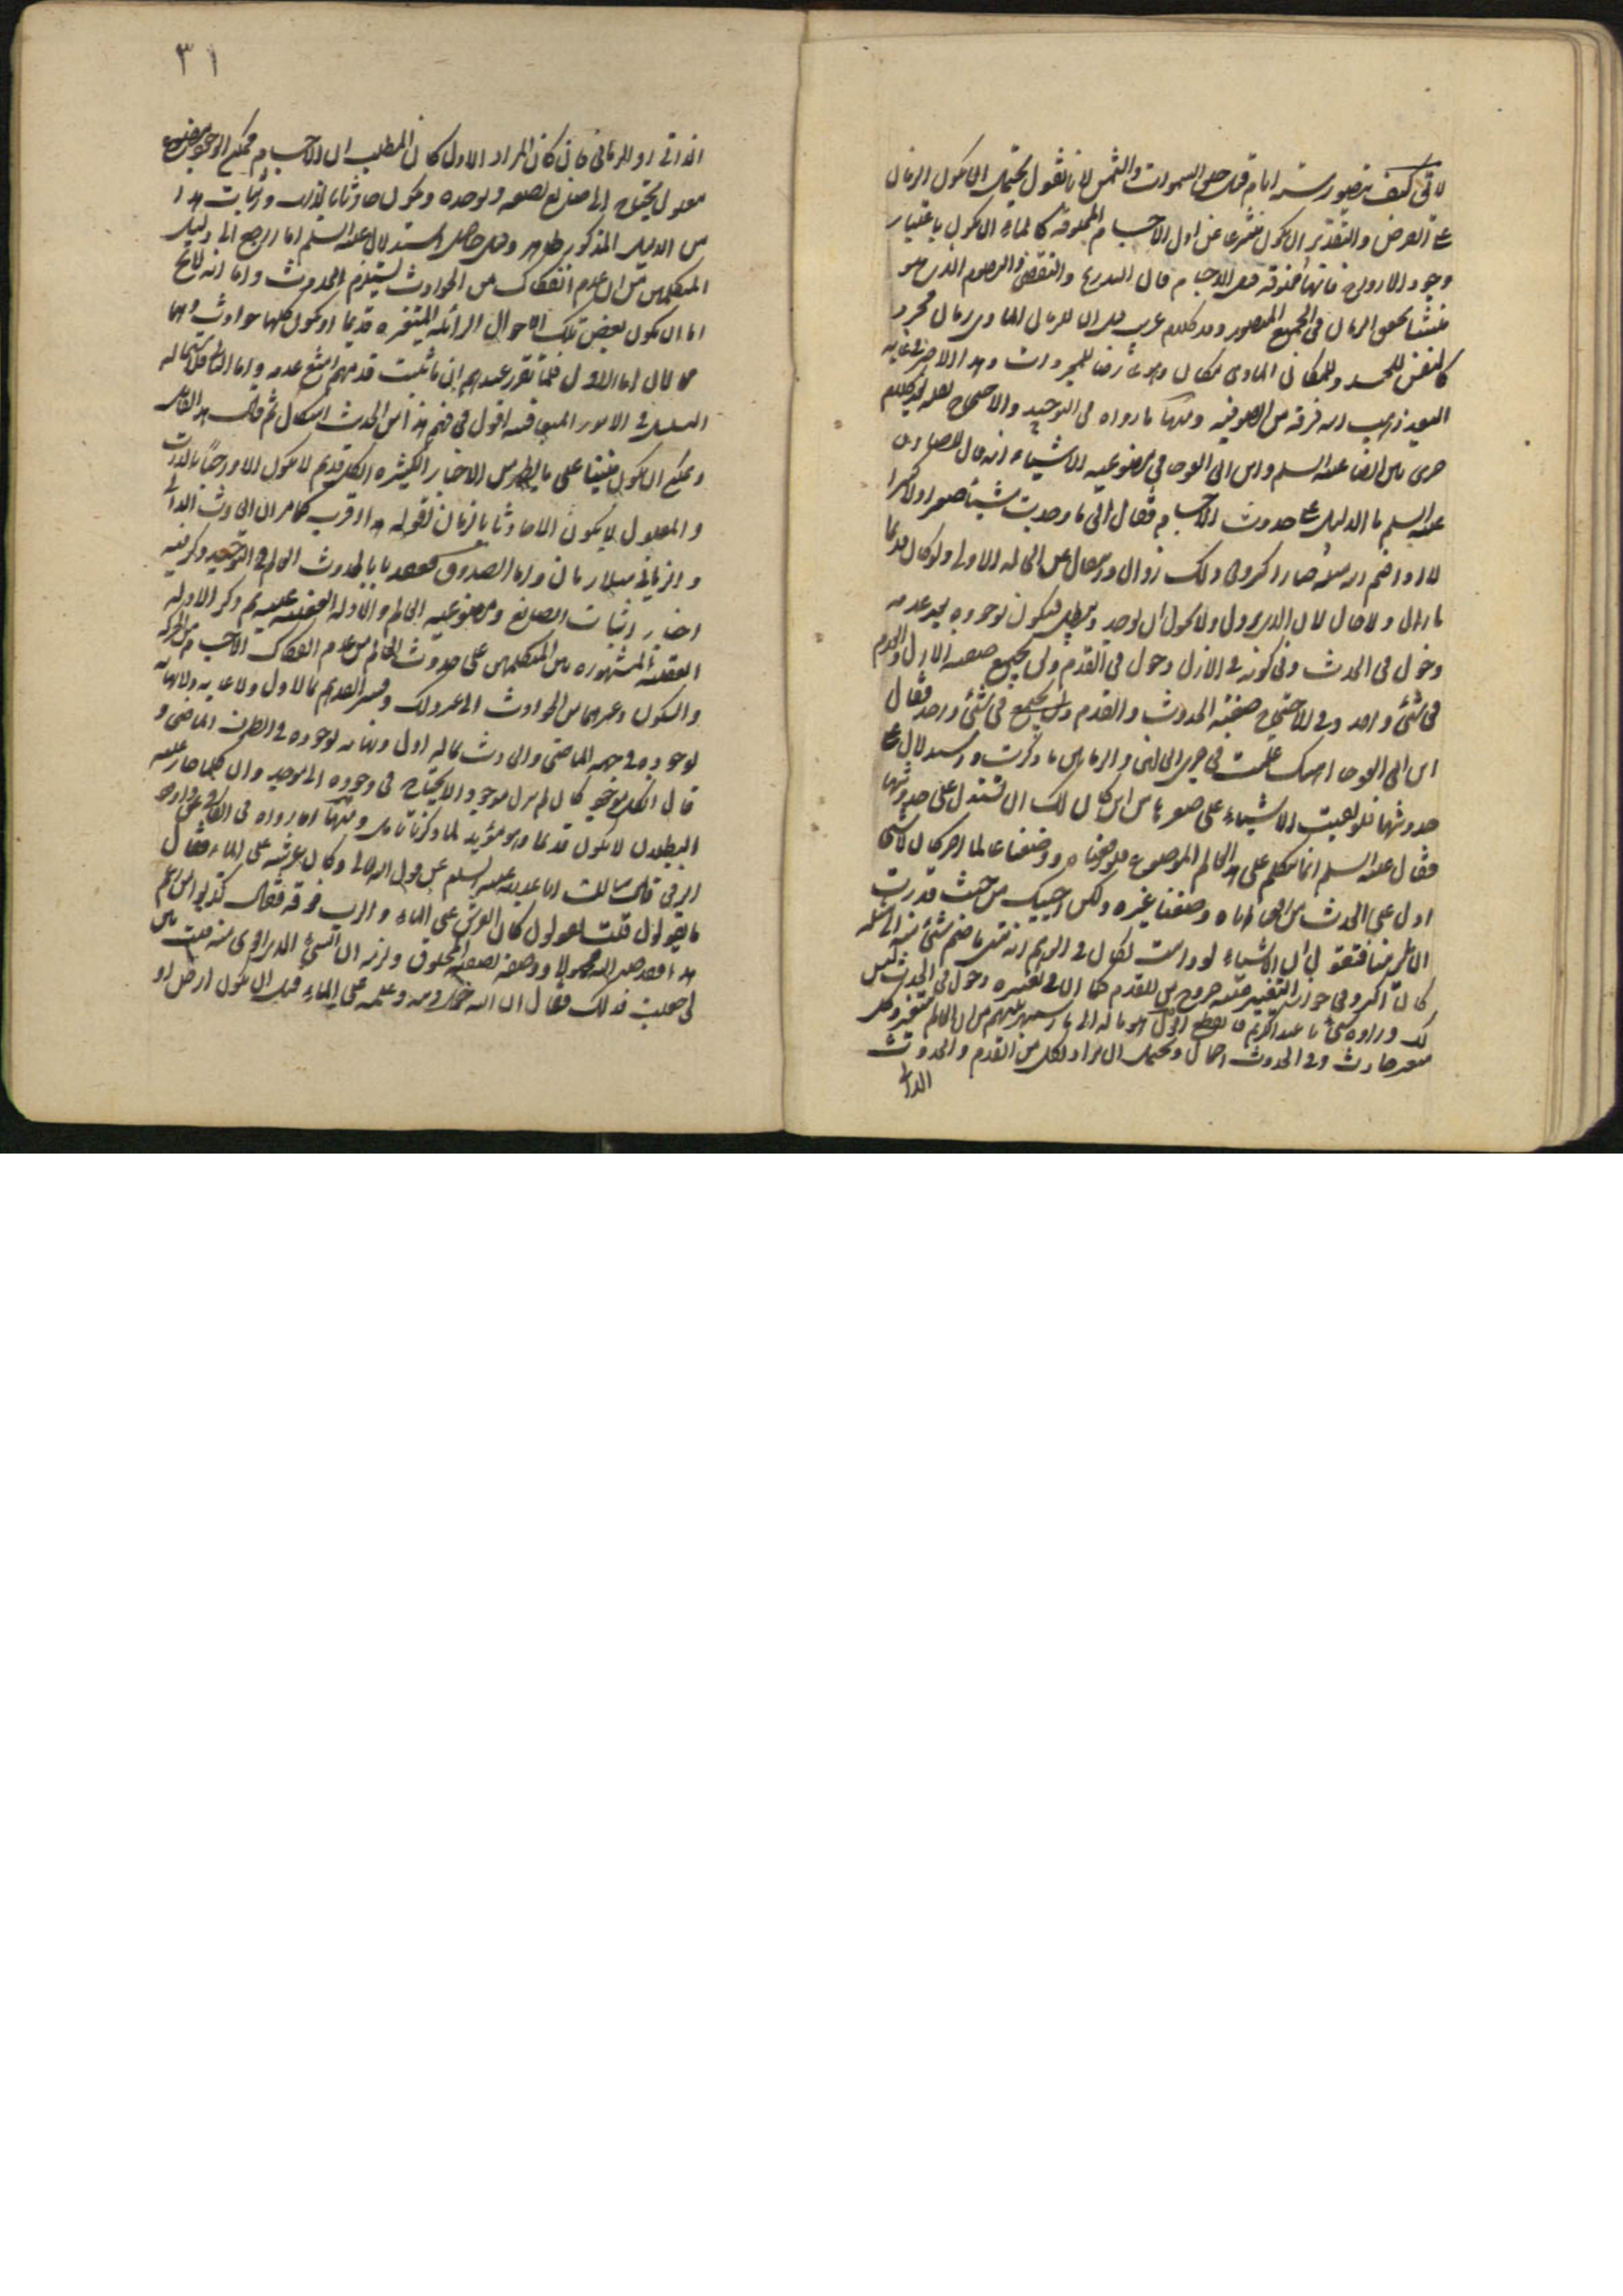 لا يق كيف يتصور ستة ايام قبل خلق السموات والشمس لانا نقول يحتمل ان يكون الزمان
على الفرض والتقدير ان يكون منتزعا عن اول الاجسام المخلوقة كالماء ان يكون باعتبار
وجود الارواح فانها مخلوقة قبل الاجسام فان التدريج والتقضى
منشأ تحقق الزمان فى الجميع المتصور وقد كلام غريب هو ان للزمان المادى زمان مجرد
كالنفس للجسد وللمكانى المادى مكان وهما عارضان للمجردات وهذا
ذهب اليه فرقة من الصوفية ومنها ما رواه فى التوحيد والاحتجاج
جرى بين الرضا عليه السلم وابن ابى العوجاء فى مصنوعية الاشياء انه قال للصادق
عليه السلم ما الدليل على حدوث الاجسام فقال انى ما وجدت شيئا صغيرا ولا كبيرا
الا واذا ضم اليه مثله صار اكبر وفى ذلك زوال وانتقال عن الحالة الاولى ولو كان قديما
ما زال ولا حال لان الذى يزول ولا يحول ان يوجد ويبطل فيكون بوجوده بعد عدمه
دخول فى الحدث وفى كونه فى الازل دخول فى القدم ولن يجتمع صفة الازل والعدم
فى شئ واحد وفى الاحتجاج صفة الحدوث والقدم ولن يجتمع فى شئ واحد فقال
ابن ابى العوجاء هبك علمت فى جرى الحالتين والزمانين ما ذكرت واستدلال على
حدوثها فلو بقيت الاشياء على صغرها من اين كان لك ان تستدل على حدوثها
فقال عليه السلم انما نتكلم على هذا العالم الموضوع فلو رفعناه ووضعنا عالما اخر كان لا شئ
ادل على الحدث من رفعنا اياه ووضعنا غيره ولكن اجيبك من حيث قدرت
ان تلزمنا فنقول ان الاشياء لو دامت لكان فى الوهم انه متى ما ضم شئ منه الى مثله
كان اكبر وفى جواز التغيير عليه خروج من القدم كما ان فى تغييره دخول فى الحدث ليس
لك وراءه شئ يا عبد الكريم فانقطع
متغير حادث وفى الحدوث احتمال ويحتمل ان المراد لكل من القدم والحدوث
الذاتى
٣١
الذاتى او الزمانى فان كان المراد الاول كان المطلب ان الاجسام ممكنة الوجود مصنوعة
معلول يحتاج الى صانع يصنعه ويوجده ويكون حادثا بالذات واثبات هذا
من الدليل المذكور ظاهر وقيل حاصل استدلال عليه السلم اما راجع الى دليل
المتكلمين من ان عدم انفكاك من الحوادث يستلزم الحدوث واما انه لا يخ
اما ان يكون بعض تلك الاحوال الزائلة المتغيرة قديما او يكون كلها حوادث وهما
محالان اما الاول فلما تقرر عندهم ان ما ثبت قدمه امتنع عدمه واما الثانى فلاستحالة
التسلسل فى الامور المتعاقبة اقول فى فهم هذا من الحديث اشكال ثم قال هذا القائل
ويمكن ان يكون مبنيا على ما يظهر من الاخبار الكثيرة ان كل قديم لا يكون الا واجبا بالذات
والمعلول لا يكون الا حادثا بالزمان اقول هذا اقرب كما مر ان الحادث الذاتى
والزمانى متلازمان واما الصدوق فعقد بابا لحدوث العالم فى التوحيد وذكر فيه
اخبار اثبات الصانع ومصنوعية العالم والادلة العقلية عليه ثم ذكر الادلة
العقلية المشهورة بين المتكلمين على حدوث العالم من عدم انفكاك الاجسام من الحركة
والسكون وغيرهما من الحوادث الى غير ذلك وفسر القديم بما لا اول ولا غاية ولا نهاية
لوجوده فى جهة الماضى والحادث بما له اول ونهاية لوجوده فى الطرف الماضى و
قال ان كل موجود كان لم يزل موجودا لا يحتاج فى وجوده الى موجد وان كلما جاز عليه
البطلان لا يكون قديما وهو مؤيد لما ذكرنا ومنها ما رواه فى الكافى عن داود
الرقى قال سالت ابا عبد الله عليه السلم عن قول الله تعالى وكان عرشه على الماء فقال
ما يقولون قلت يقولون كان العرش على الماء والرب فوقه فقال كذبوا من زعم
هذا فقد صير الله محمولا ووصفه بصفة المخلوق ولزمه ان الشئ الذى يحمله اقوى منه قلت بين
لى جعلت فداك فقال ان الله حمل دينه وعلمه على الماء قبل ان يكون ارض او